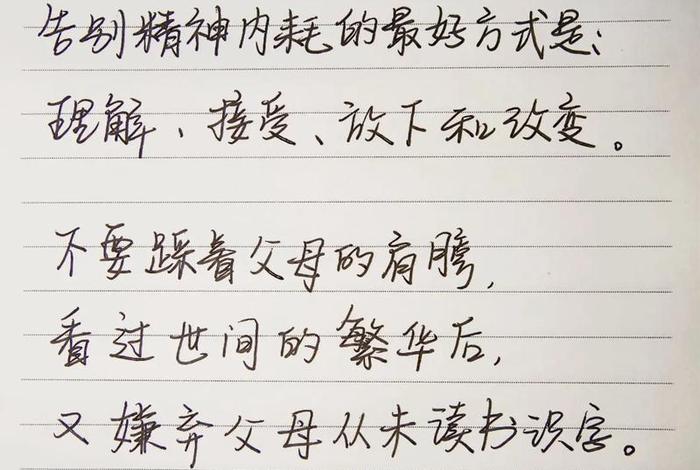 告别精神内耗的最好方式是:
理解、接受、放下和改变。
不要踩着父母的肩膀,
看过世间的繁华后,
又嫌弃父母从未读书识字。